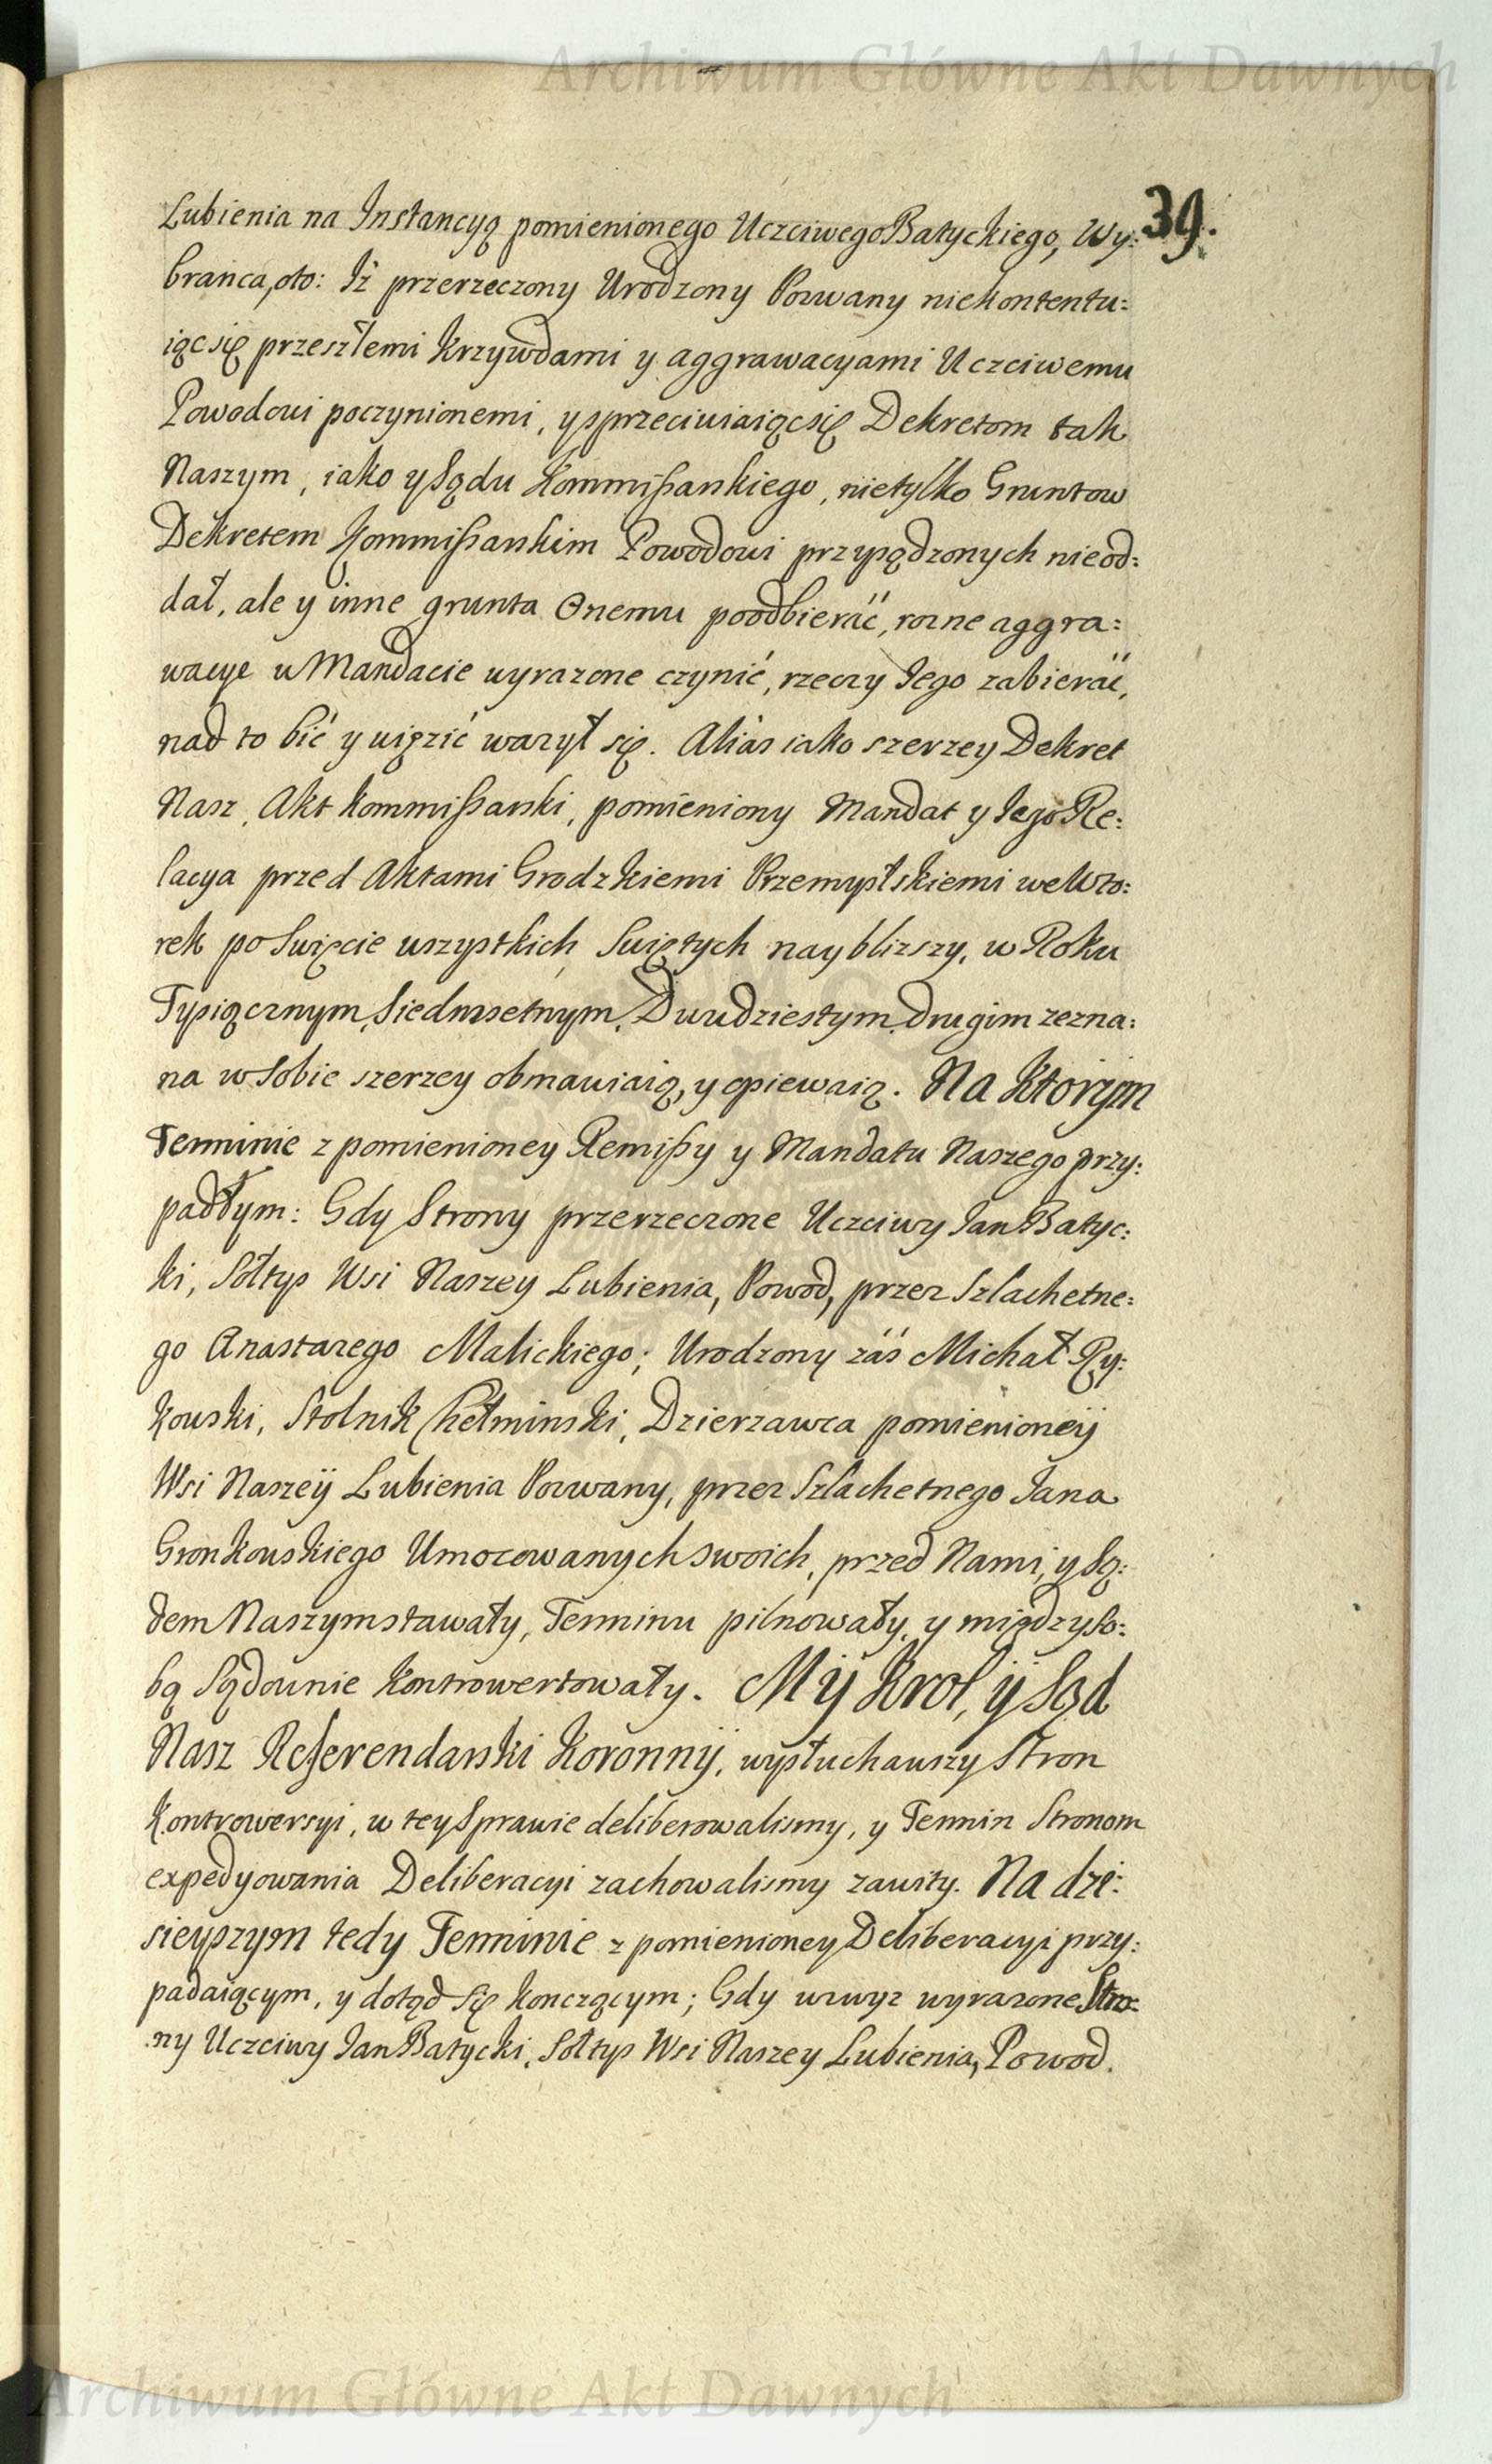 Archiwum Główne Akt Dawnych
39.
Lubienia na Instancyą pomienionego Uczciwego Batyckiego, Wy:
branca, oto: Iż przerzeczony Urodzony Pozwany niekontentu:
iąc się przeszłemi krzywdami y aggrawacyami Uczciwemu
Powodowi poczynionemi, y sprzeciwiaiąc się Dekretom tak
Naszym, iako y Sądu Kommißarskiego, nietylko Gruntow
Dekretem Kommißarskim Powodowi przysądzonych nieod:
dał, ale y inne grunta Onemu poodbierać, rozne aggra:
wacye w Mandacie wyrazone czynić, rzeczy Jego zabierać,
nad to bić y więzić wazył się. Aliàs iako szerzey Dekret
Nasz, Akt Kommißarski, pomieniony Mandat y Jego Re:
lacya przed Aktami Grodzkiemi Przemyslskiemi we Wto:
rek po Swięcie wszystkich Swiętych nayblizszy, w Roku
Tysiącznym, Siedmsetnym, Dwudziestym, drugim zezna:
na w sobie szerzey obmawiaią, y opiewaią. Na ktorym
Terminie z pomienioney Remißy y Mandatu Naszego przy:
padłym: Gdy Strony przerzeczone Uczciwy Jan Batyc:
ki, Sołtys Wsi Naszey Lubienia, Powod, przez Szlachetne:
go Anastazego Malickiego; Urodzony záś Michał Ry:
kowski, Stolnik Chełminski, Dzierzawca pomienioneÿ
Wsi Naszeÿ Lubienia Pozwany, przez Szlachetnego Jana
Gronkowskiego Umocowanych swoich, przed Nami, y Są:
dem Naszym stawały, Terminu pilnowały, y między so:
bą Sądownie kontrowertowały. Mÿ Krol, ÿ Sąd
Nasz Referendarski Koronnÿ, wysłuchawszy Stron
Kontrowersyi, w tey Sprawie deliberowalismy, y Termin Stronom
expedyowania Deliberacyi zachowalismy zawity. Na dzi:
sieyszym tedy Terminie z pomienioney Deliberacyi przy:
padaiącym, y dotąd się konczącym; Gdy wzwyz wyrazone Stro:
ny Uczciwy Jan Batycki, Sołtys Wsi Naszey Lubienia, Powod.
Archiwum Główne Akt Dawnych